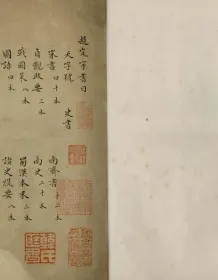 趙定宇書目
天字號
史書
宋書四十本
南齊書
貞觀政要二本
南史二十本
戰國策八本
蜀漢本末二本
國語四本
諸史提要八本